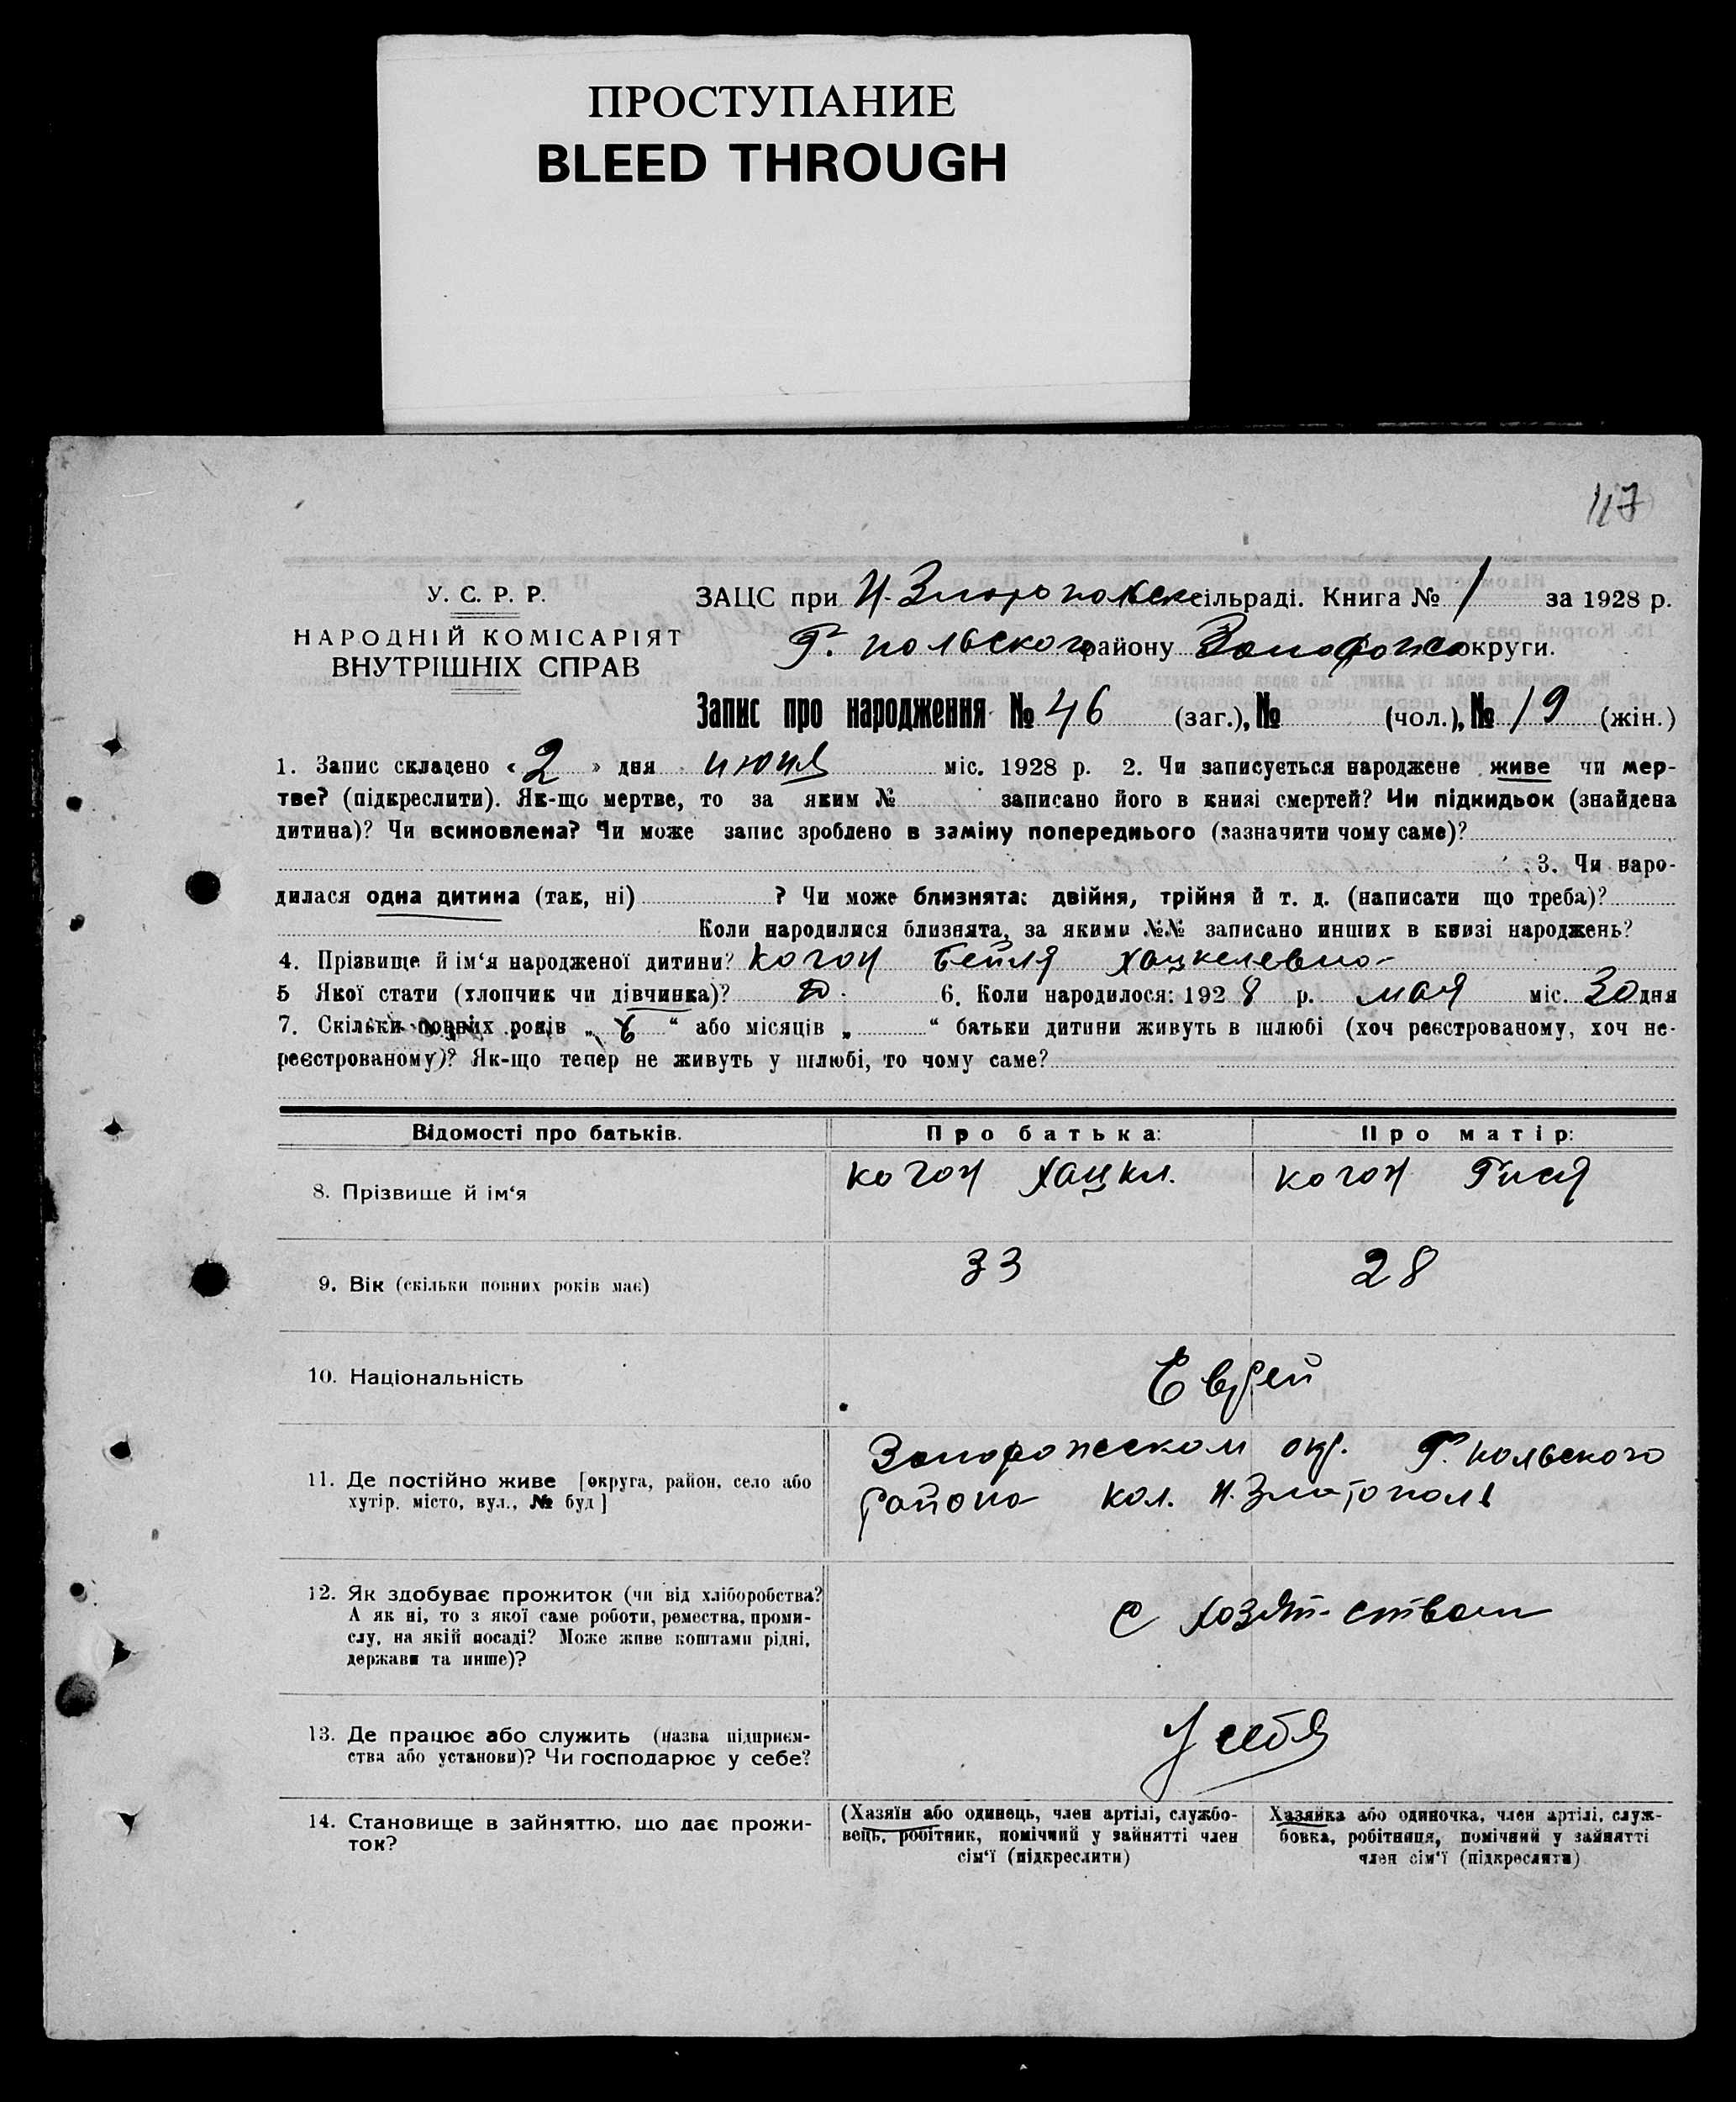 ПРОСТУПАНИЕ
BLEED THROUGH
117
У. С. Р. Р.
НАРОДНІЙ КОМІСАРІЯТ
ВНУТРІШНІХ СПРАВ
ЗАЦС при сільраді. Книга № 1 за 1928 р.
Г. польского району округи.
Запис про народження № 46 (заг.), № (чол.), № 19 (жін.)
1. Запис складено «2» дня июня міс. 1928 р. 2. Чи записується народжене живе чи мер-
тве? (підкреслити). Як-що мертве, то за яким № записано його в книзі смертей? Чи підкидьок (знайдена
дитина)? Чи всиновлена? Чи може запис зроблено в заміну попереднього (зазначити чому саме)?
3. Чи наро-
дилася одна дитина (так, ні) ? Чи може близнята: двійня, трійня й т. д. (написати що треба)?
Коли народилися близнята, за якими №№ записано инших в книзі народжень?
4. Прізвище й ім‘я народженої дитини? Коган Бейля Хацкелевна
5 Якої стати (хлопчик чи дівчинка)? 6. Коли народилося: 1928 р. мая міс. 30 дня
7. Скільки повних років „ 6 “ або місяців „ “ батьки дитини живуть в шлюбі (хоч реєстрованому, хоч не-
реєстрованому)? Як-що тепер не живуть у шлюбі, то чому саме?
Відомості про батьків. Про батька: Про матір:
8. Прізвище й ім‘я Коган Хацкл. Коган Гися
9. Вік (скільки повних років має) 33 28
10. Національність Еврей
11. Де постійно живе [округа, район, село або
хутір, місто, вул., № буд]
Запорожском окр. Г. польского
района кол. Н. Златополь
12. Як здобуває прожиток (чи від хліборобства?
А як ні, то з якої саме роботи, ремества, проми-
слу, на якій посаді? Може живе коштами рідні,
держави та инше)?
с хозяй-ством
13. Де працює або служить (назва підприєм-
ства або установи)? Чи господарює у себе?
У себя
14. Становище в зайняттю, що дає прожи-
ток?
(Хазяїн або одинець, член артілі, службо-
вець, робітник, помічний у зайнятті член
сім‘ї (підкреслити)
Хазяйка або одиночка, член артілі, служ-
бовка, робітниця, помічний у зайнятті
член сім‘ї (підкреслити)